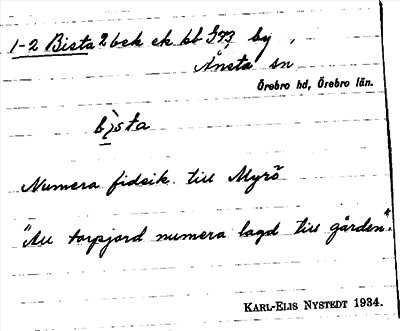 1-2 Bista 2 bek ek bb Gr7 by,
Ånsta sn
Örebro hd, Örebro län.
bista
Numera fideik. till Myrö
"All torpjord numera lagd till gården".
KARL-ELIS NYSTEDT 1934.